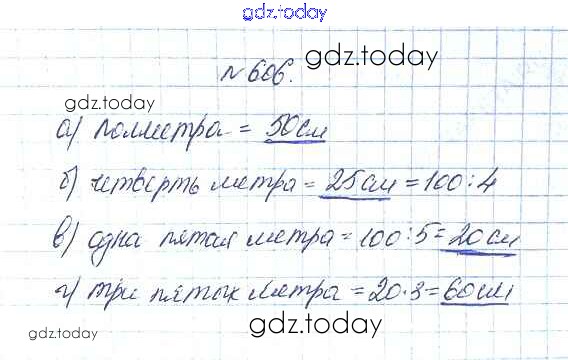 gdz.today
№ 606. gdz.today
gdz.today
а) полметра = 50 см
б) четверть метра = 25 см = 100 : 4
в) одна пятая метра = 100 : 5 = 20 см
г) три пятых метра = 20 · 3 = 60 см
gdz.today
gdz.today